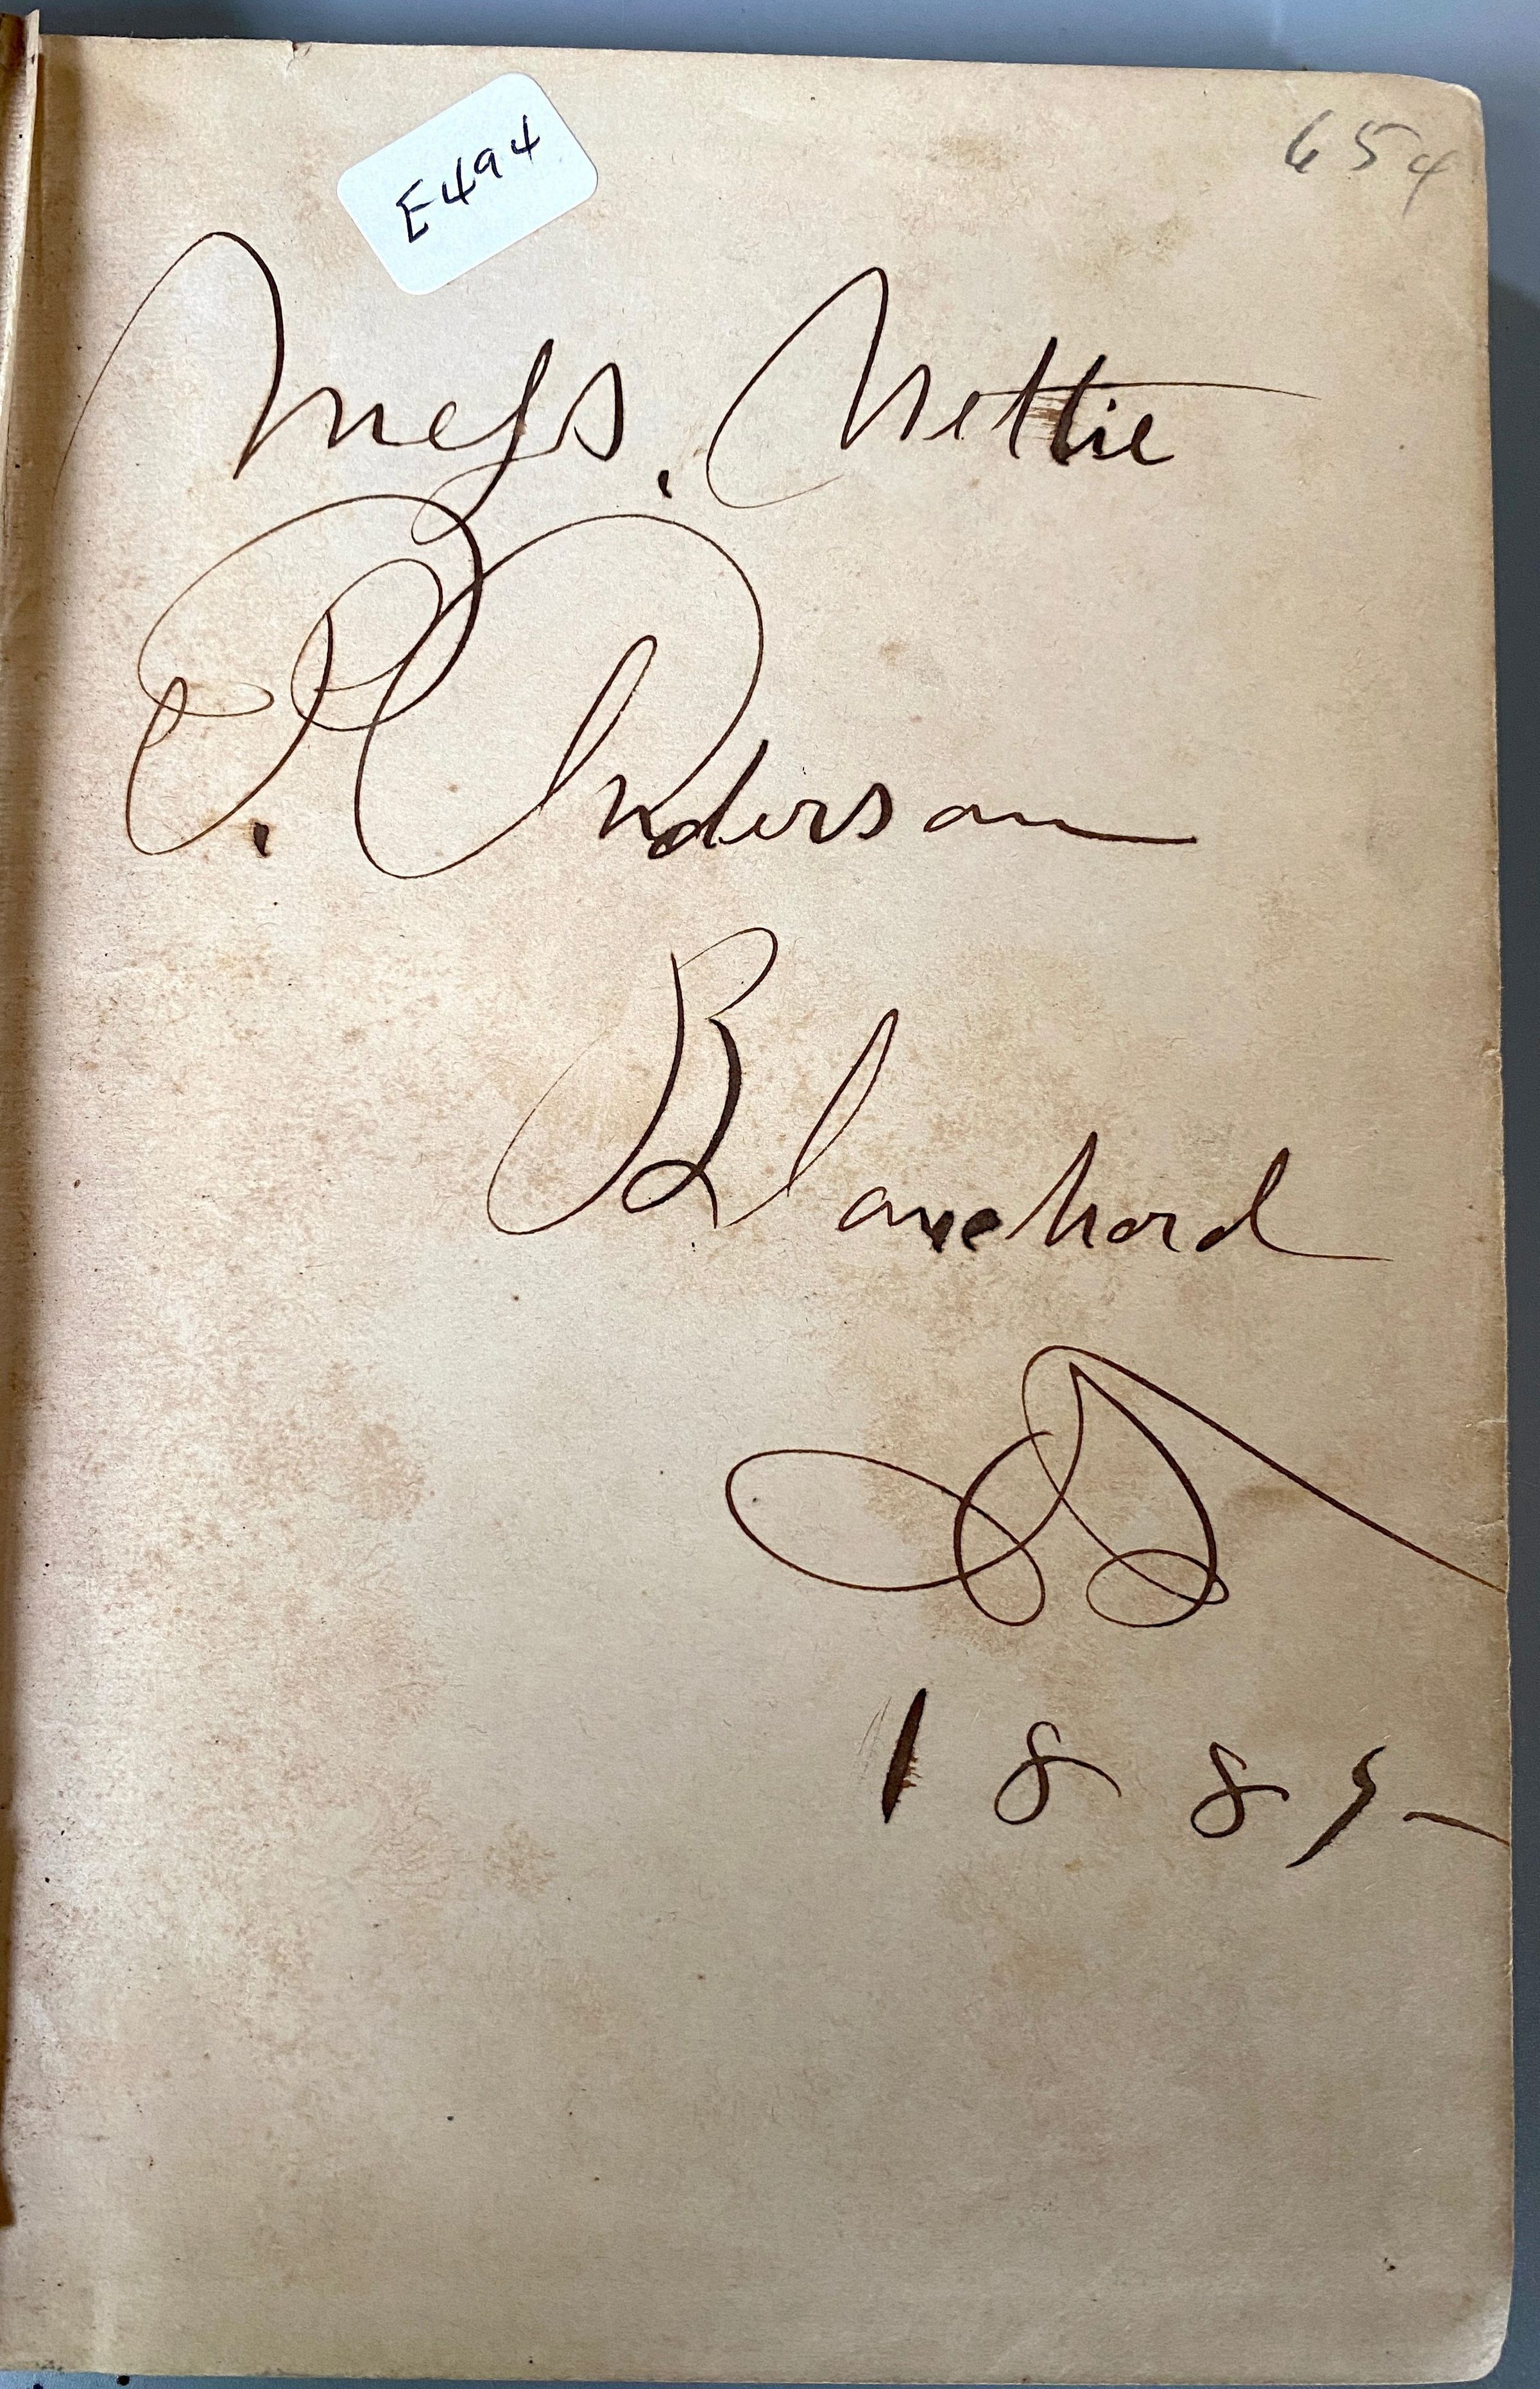 E494
654
Miss. Nettie
E. Anderson
Blanchard
1885